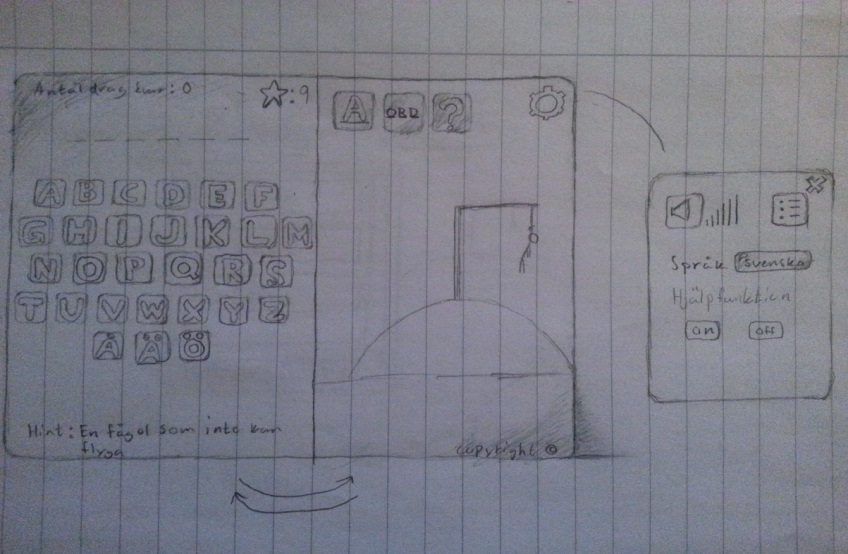 Antal drag kvar: 0
:9
A
ORD
?
A B C D E F
G H I J K L M
N O P Q R S
T U V W X Y Z
Å Ä Ö
Hint: En fågel som inte kan
flyga
copyright ©
Språk svenska
Hjälpfunktion
on off